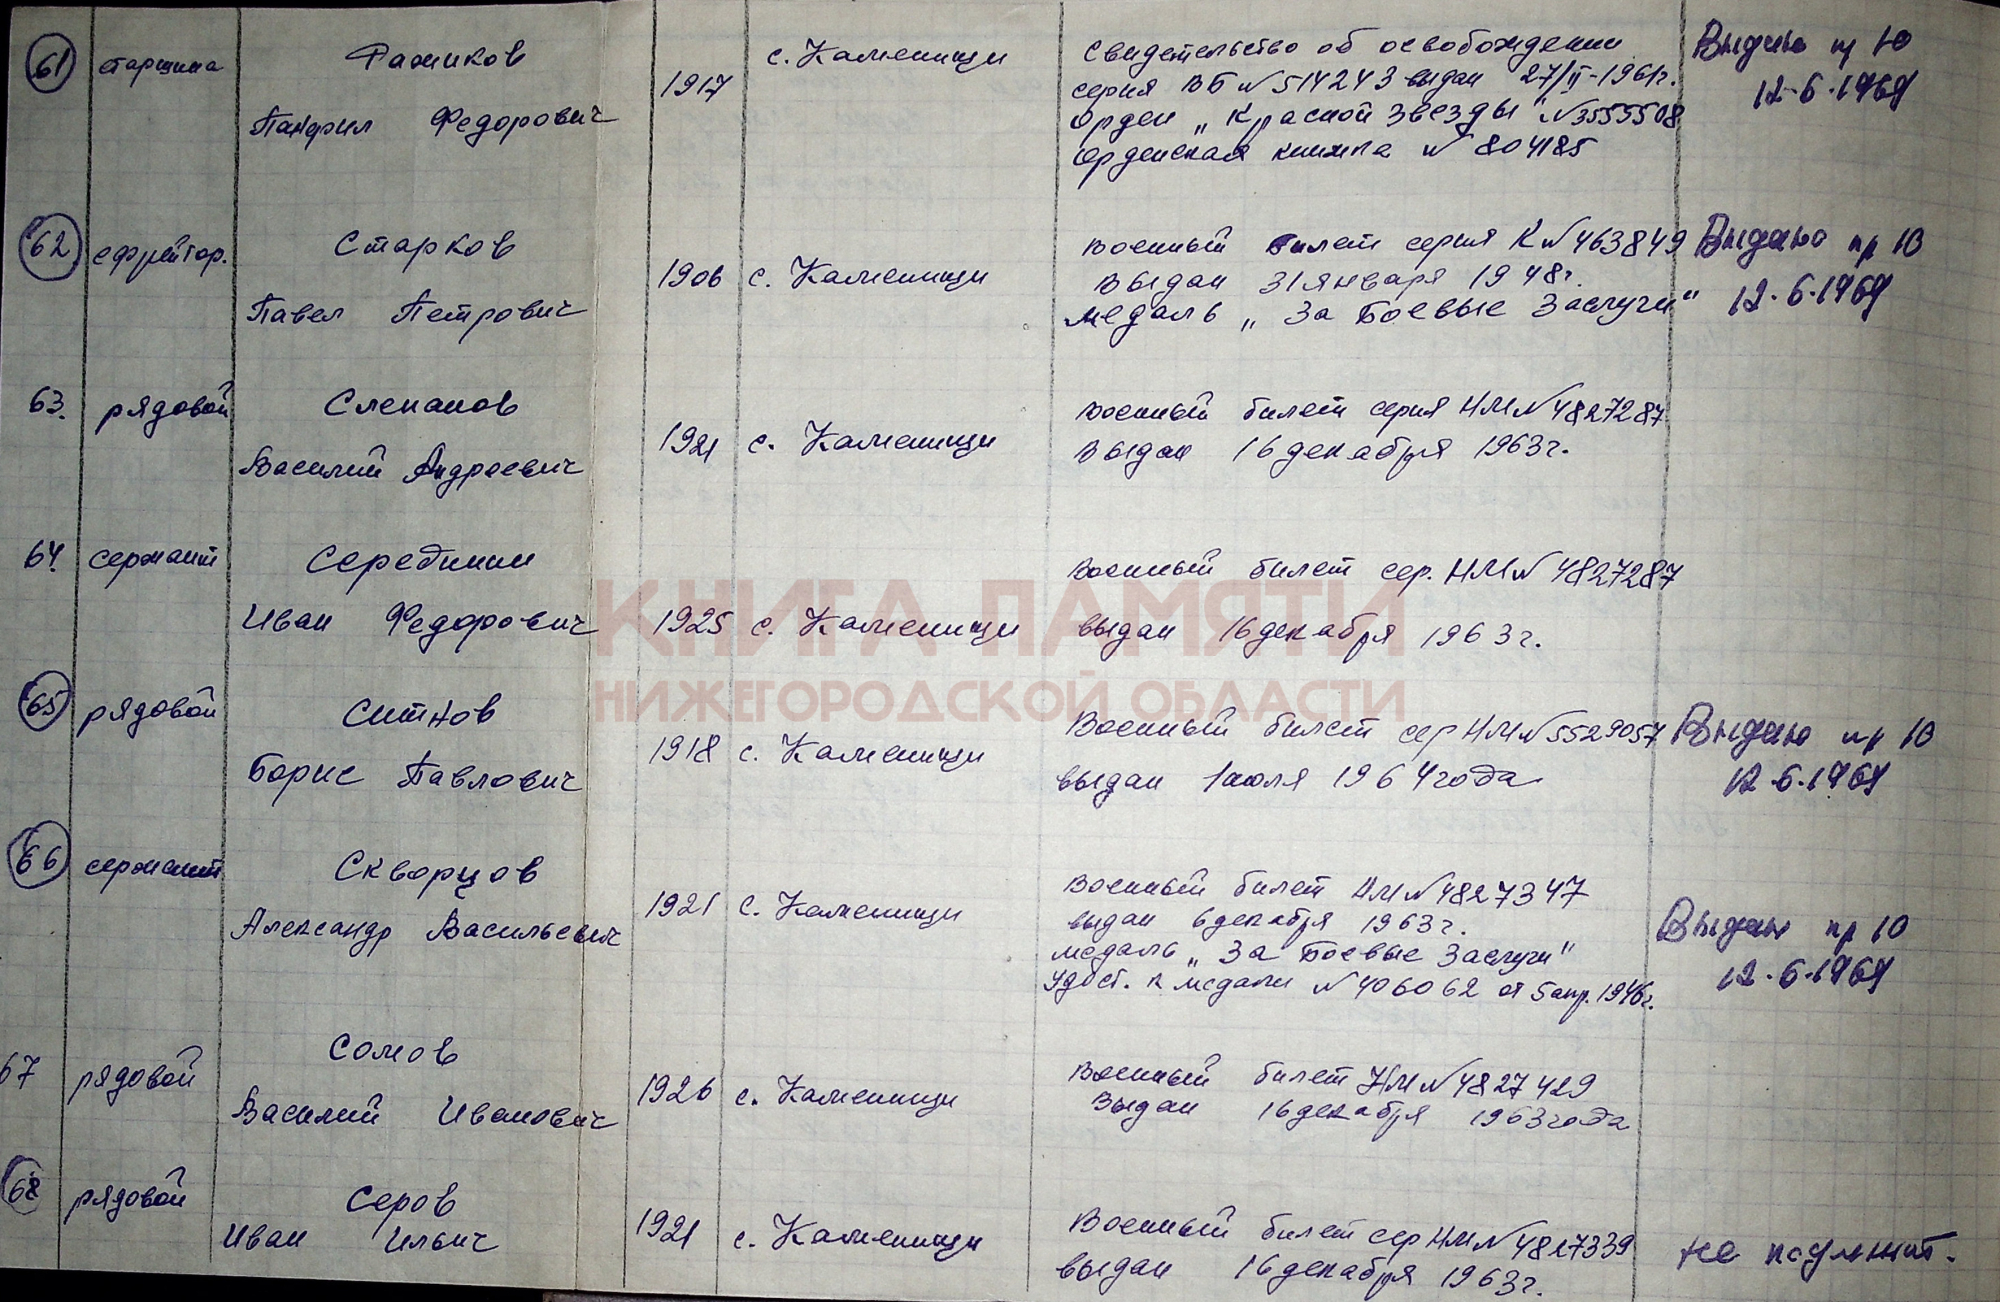 61 старшина Фатиков
Панфил Федорович
1917 с. Каменищи
Свидетельство об освобождении
серия ВБ № 514243 выдан 27/II-1961г.
орден „Красной Звезды" № 3555508
орденская книжка № 804185
Выдано пр 10
12-6-1969
62 ефрейтор. Старков
Павел Петрович
1906 с. Каменищи
Военный билет серия К № 463849
Выдан 31 января 1948г.
медаль „За Боевые Заслуги"
Выдано пр 10
12.6.1969
63. рядовой Слепанов
Василий Андреевич
1921 с. Каменищи
Военный билет серия НМ № 4827287
Выдан 16 декабря 1963г.
64. сержант
Иван Федорович
1925 с. Каменищи
Военный билет сер. НМ № 4827287
выдан 16 декабря 1963г.
КНИГА ПАМЯТИ
НИЖЕГОРОДСКОЙ ОБЛАСТИ
65 рядовой Ситнов
Борис Павлович
1918 с. Каменищи
Военный билет сер НМ № 5529057
выдан 1 июля 1964 года
Выдано пр 10
12.6.1969
66 сержант Скворцов
Александр Васильевич
1921 с. Каменищи
Военный билет НМ № 4827347
выдан 6 декабря 1963г.
медаль „За Боевые Заслуги"
Удост. к медали № 406062 от 5 апр. 1946г.
Выдано пр 10
12.6.1969
67 рядовой Сомов
Василий Иванович
1926 с. Каменищи
Военный билет НМ № 4827429
Выдан 16 декабря 1963 года
68 рядовой Серов
Иван Ильич
1921 с. Каменищи
Военный билет сер НМ № 4827339
выдан 16 декабря 1963г.
не